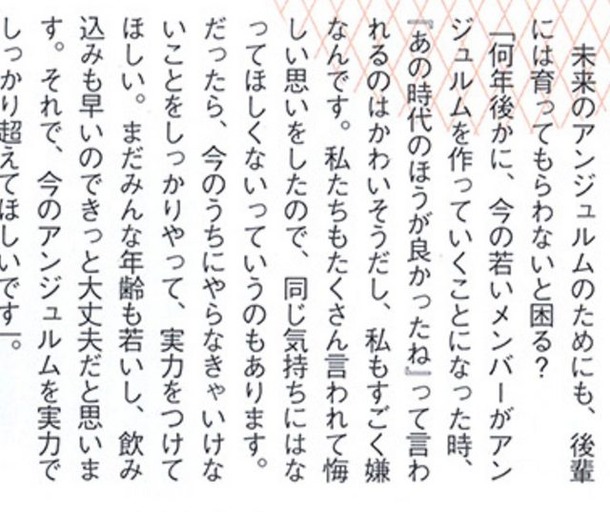 未来のアンジュルムのためにも、後輩
には育ってもらわないと困る？
「何年後かに、今の若いメンバーがアン
ジュルムを作っていくことになった時、
『あの時代のほうが良かったね』って言わ
れるのはかわいそうだし、私もすごく嫌
なんです。私たちもたくさん言われて悔
しい思いをしたので、同じ気持ちにはな
ってほしくないっていうのもあります。
だったら、今のうちにやらなきゃいけな
いことをしっかりやって、実力をつけて
ほしい。まだみんな年齢も若いし、飲み
込みも早いのできっと大丈夫だと思いま
す。それで、今のアンジュルムを実力で
しっかり超えてほしいです」。